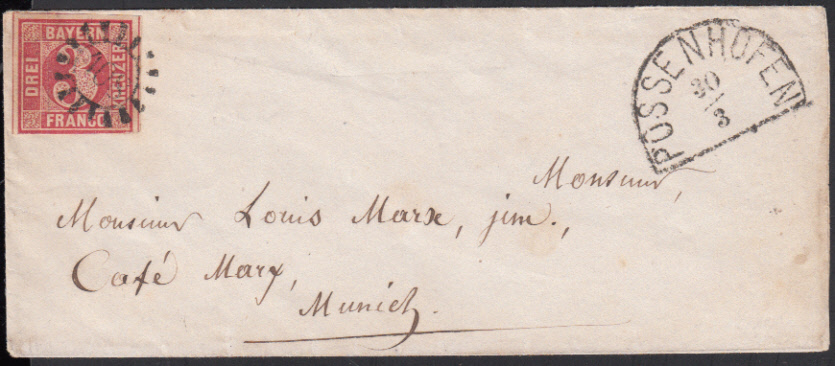 BAYERN
DREI
3
KREUZER
FRANCO
POSSENHOFEN
30
3
Monsieur,
Monsieur Louis Marx, jun.,
Café Marx,
Munich.